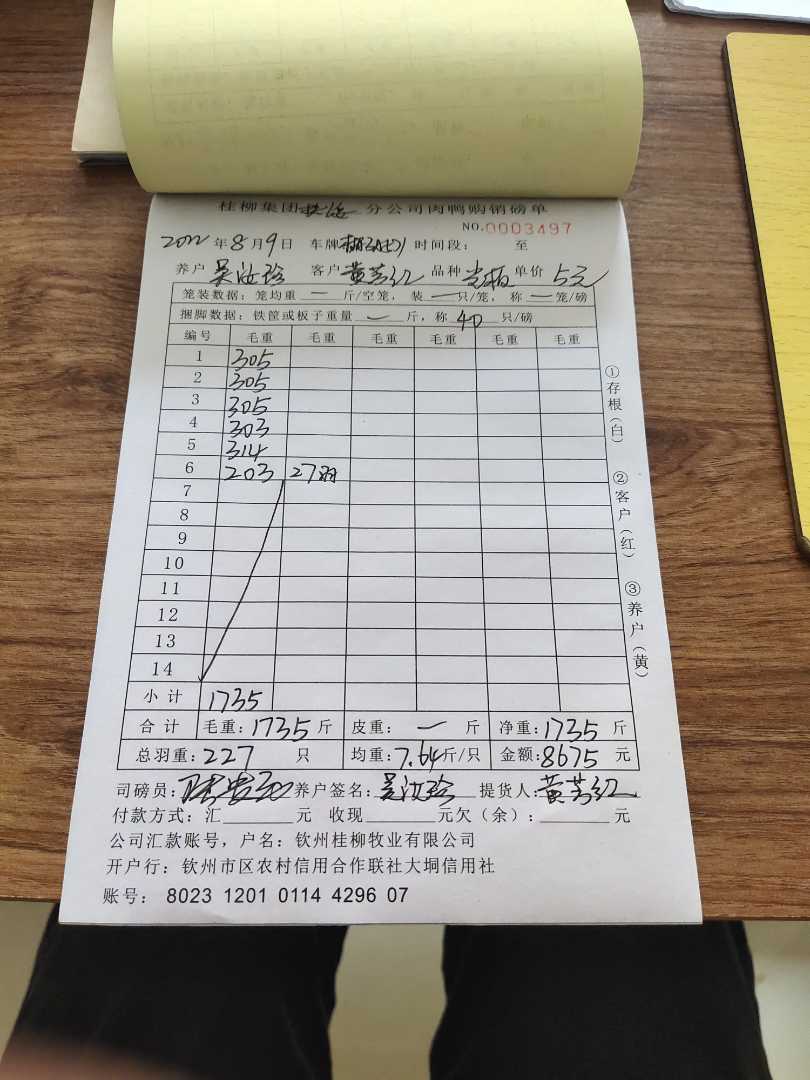 桂柳集团 分公司肉鸭购销磅单
NO.0003497
2022年8月9日 车牌 时间段: 至
养户 吴汝珍 客户 黄芳红 品种 单价 5元
笼装数据:笼均重 一 斤/空笼,装 一 只/笼,称 一 笼/磅
捆脚数据:铁筐或板子重量 一 斤,称 40 只/磅
编号 毛重 毛重 毛重 毛重 毛重 毛重
1 305
2 305
3 305
4 303
5 314
6 203 27羽
7
8
9
10
11
12
13
14
小计 1735
合计 毛重:1735斤 皮重:一 斤 净重:1735斤
总羽重:227 只 均重:7.64斤/只 金额:8675元
司磅员: 养户签名:吴汝珍 提货人:黄芳红
付款方式:汇 元 收现 元欠(余): 元
公司汇款账号,户名:钦州桂柳牧业有限公司
开户行:钦州市区农村信用合作联社大垌信用社
账号: 8023 1201 0114 4296 07
①存根(白)
②客户(红)
③养户(黄)